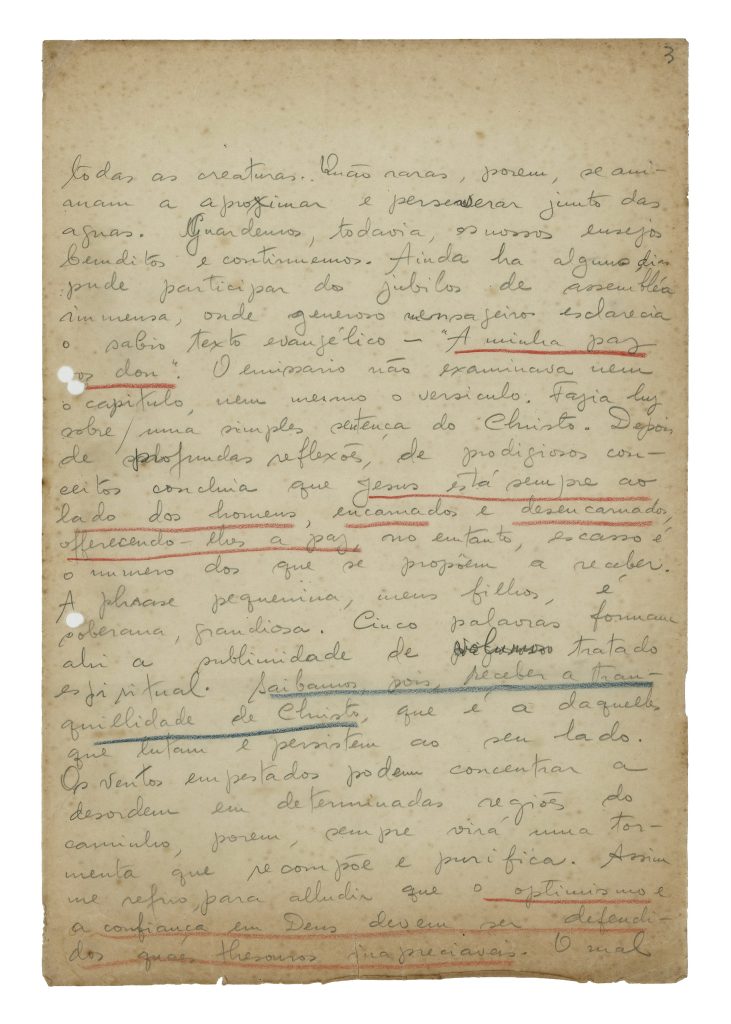 3
todas as creaturas. Quão raras, porem, se ani-
mam a aproximar e perseverar junto das
aguas. Guardemos, todavia, os nossos ensejos
bemditos e continuemos. Ainda ha alguns dias
pude participar dos jubilos de assembléa
immensa, onde generoso mensageiro esclarecia
o sabio texto evangélico — "A minha paz
vos dou". O emissario não examinava nem
o capitulo, nem mesmo o versiculo. Fazia luz
sobre uma simples sentença do Christo. Depois
de profundas reflexões, de prodigiosos con-
ceitos concluia que Jesus está sempre ao
lado dos homens, encarnados e desencarnados,
offerecendo-lhes a paz, no emtanto, escasso é
o numero dos que se propõem a receber.
A phrase pequenina, meus filhos, é
soberana, grandiosa. Cinco palavras formam
ahi a sublimidade de volumoso tratado
espiritual. Saibamos pois, receber a tran-
quillidade de Christo, que é a daquelles
que lutam e persistem ao seu lado.
Os ventos empestados podem concentrar a
desordem em determinadas regiões do
caminho, porem, sempre virá uma tor-
menta que recompõe e purifica. Assim
me refiro, para alludir que o optimismo e
a confiança em Deus devem ser defendi-
dos quaes thesouros inapreciaveis. O mal